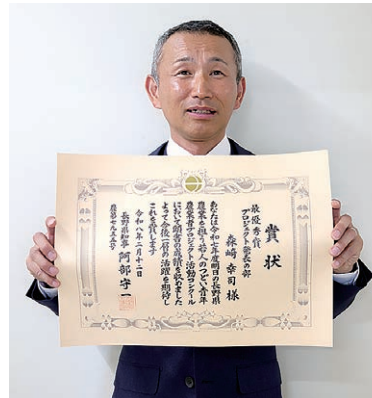 賞状
最優秀賞
プロジェクト発表の部
森崎幸司様
あなたは令和七年度明日の長野県
農業を担う若人のつどい青年
農業者プロジェクト活動コンクール
において頭書の成績を収めました
よって今後一層の活躍を期待し
これを賞します
令和八年二月十二日
長野県知事 阿部守一